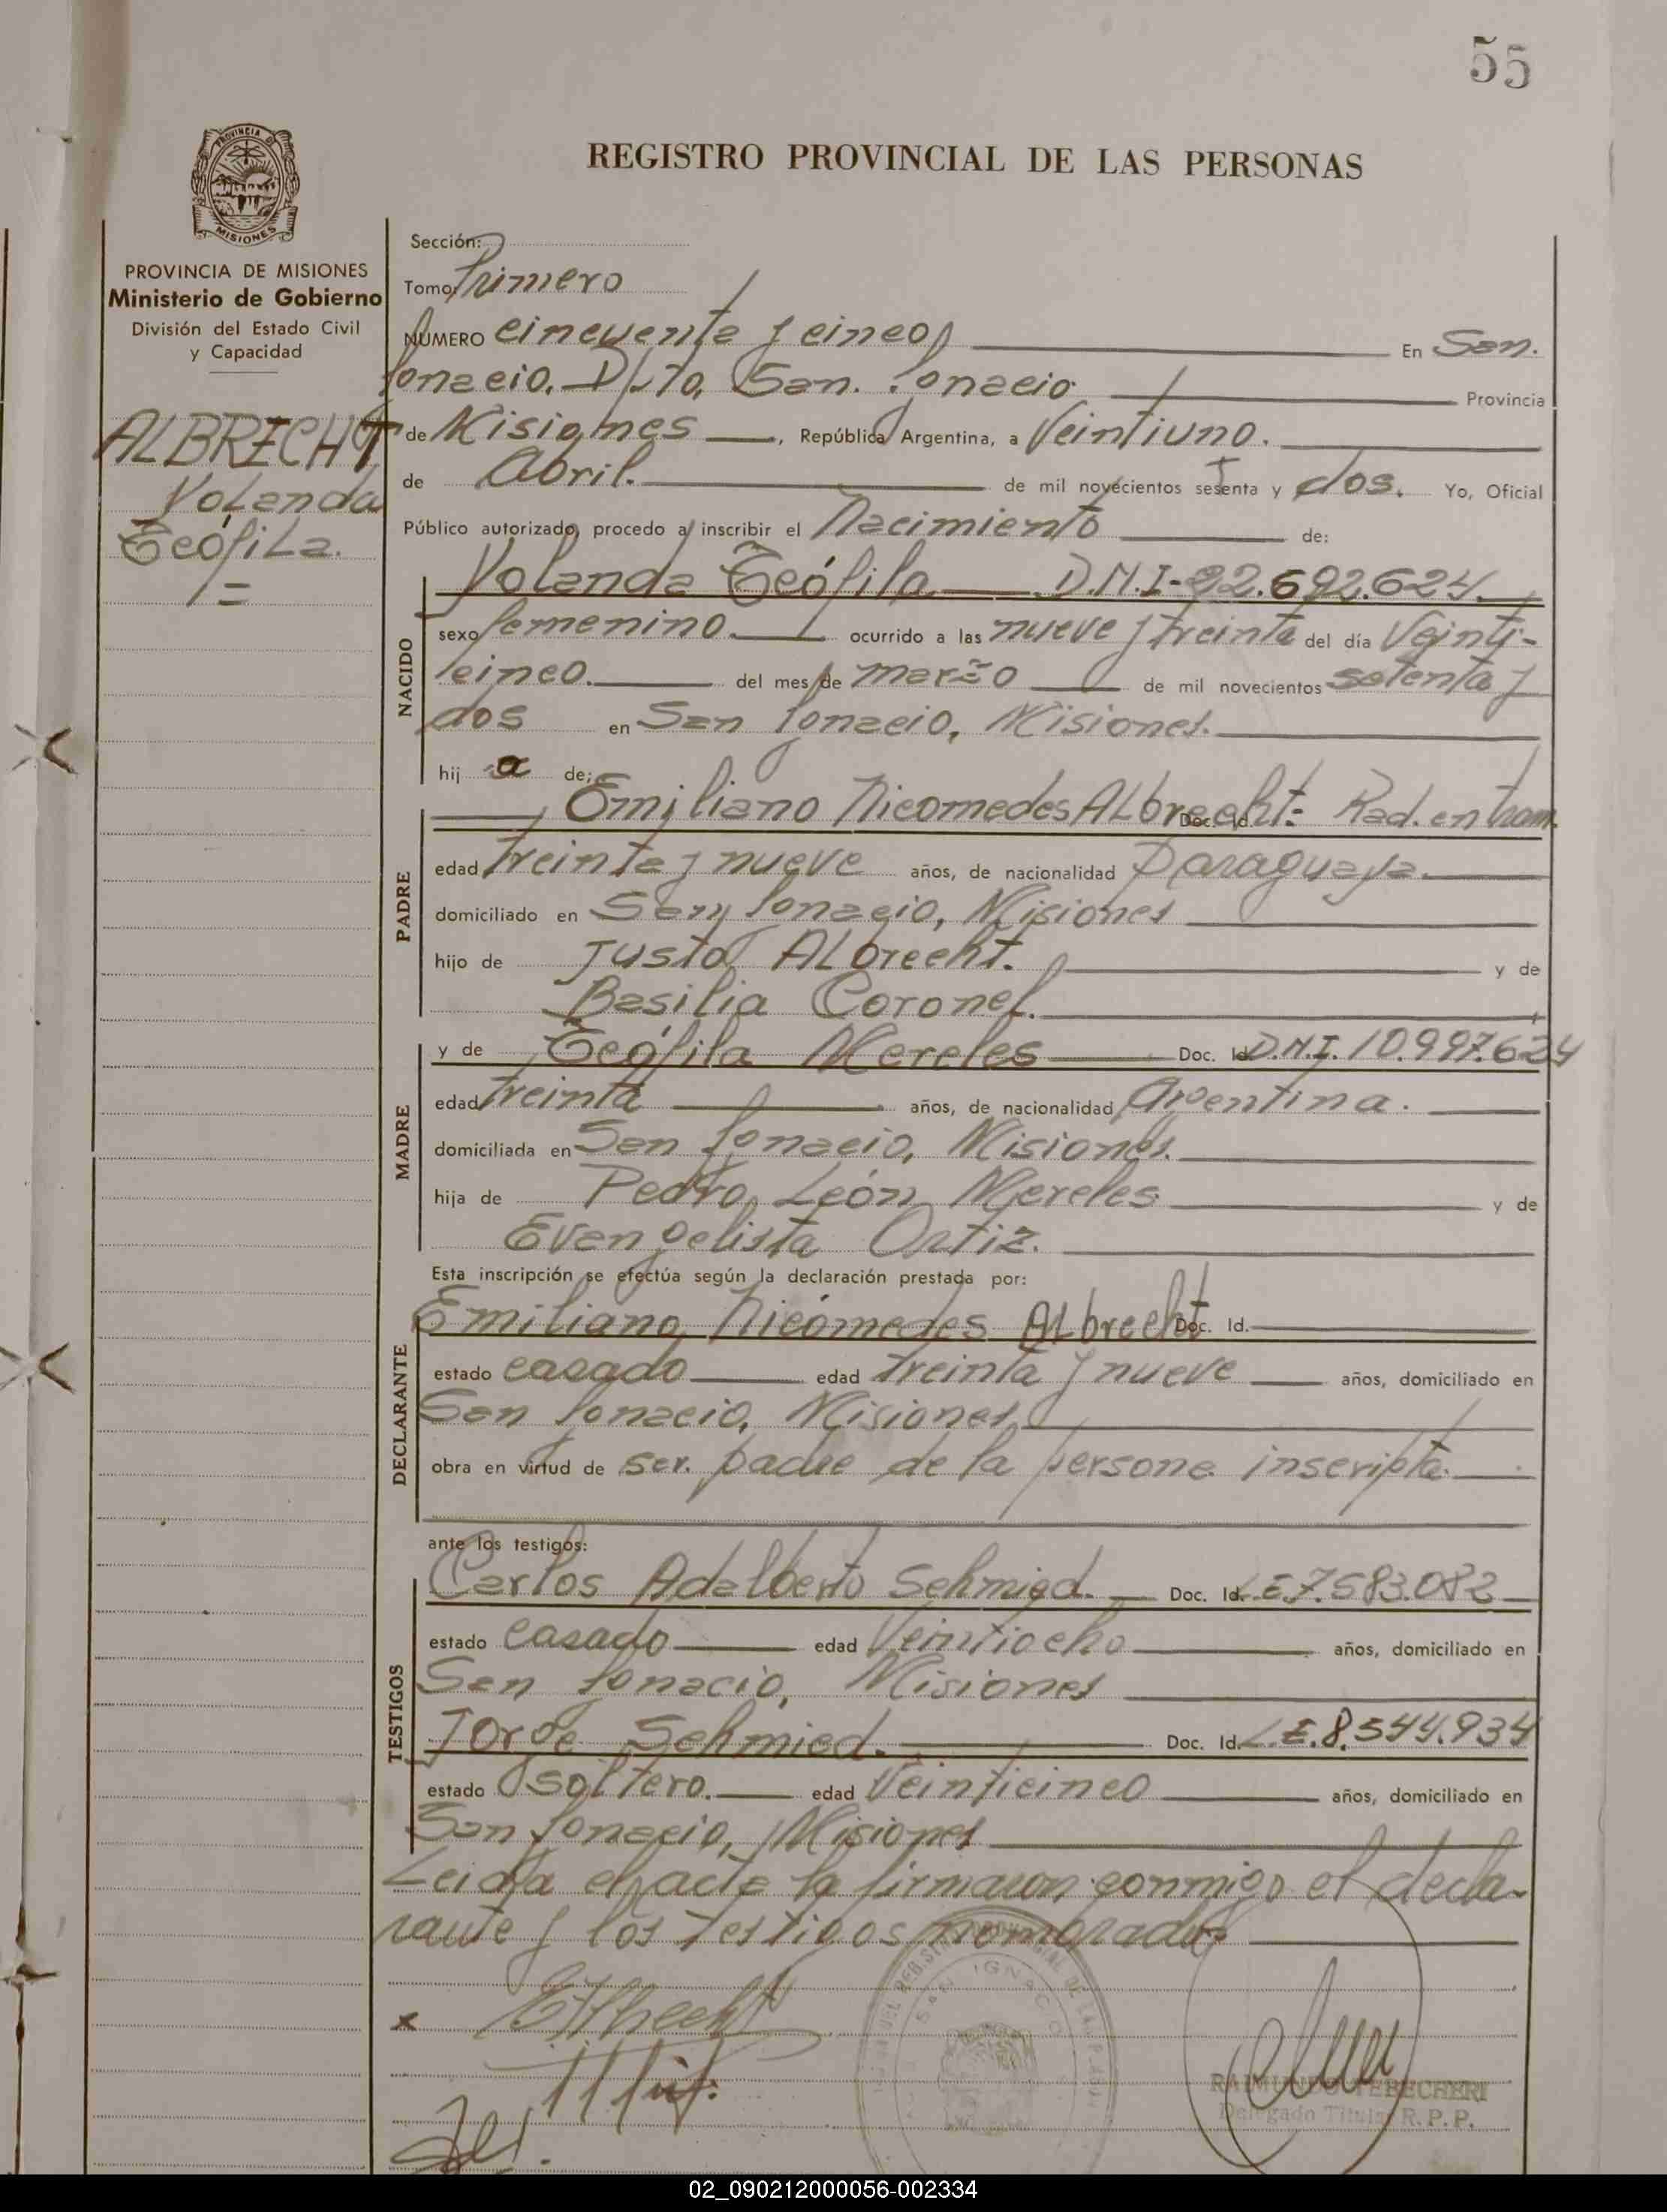 55
REGISTRO PROVINCIAL DE LAS PERSONAS
PROVINCIA DE
MISIONES
PROVINCIA DE MISIONES
Ministerio de Gobierno
División del Estado Civil
y Capacidad
ALBRECHT
Yolanda
Teófila.
Sección:
Tomo: Primero
NUMERO cincuenta y cinco En San.
Ignacio. Dpto, San. Ignacio Provincia
de Misiones, República Argentina, a Veintiuno.
de Abril. de mil novecientos setenta y dos. Yo, Oficial
Público autorizado, procedo a inscribir el Nacimiento de:
NACIDO
Yolanda Teófila D.N.I-22.692.624.
sexo femenino. ocurrido a las nueve y treinta del día Veinti-
cinco. del mes de marzo de mil novecientos setenta y
dos en San Ignacio, Misiones.
hij a de:
PADRE
Emiliano Nicomedes ALbrecht= Doc. Id. Rad. en tram.
edad treinta y nueve años, de nacionalidad Paraguaya.
domiciliado en San Ignacio, Misiones
hijo de Justo ALbrecht. y de
Basilia Coronel.
MADRE
y de Teófila Mereles Doc. Id. D.N.I. 10.997.624
edad treinta años, de nacionalidad Argentina.
domiciliada en San Ignacio, Misiones.
hija de Pedro León Mereles y de
Evangelista Ortiz.
Esta inscripción se efectúa según la declaración prestada por:
DECLARANTE
Emiliano Nicómedes ALbrecht Doc. Id.
estado casado edad treinta y nueve años, domiciliado en
San Ignacio, Misiones
obra en virtud de ser. padre de la persona inscripta.
ante los testigos:
TESTIGOS
Carlos Adalberto Schmied. Doc. Id. L.E 7.583.082
estado casado edad Veintiocho años, domiciliado en
San Ignacio, Misiones
Jorge Schmied. Doc. Id. L.E. 8.544.934
estado soltero. edad Veinticinco años, domiciliado en
San Ignacio, Misiones
Leida el acta la firmaron conmigo el decla-
rante y los testigos nombrados
x
SAN IGNACIO
RAIMUNDO TEBECHERI
Delegado Titular R.P.P.
02_090212000056-002334